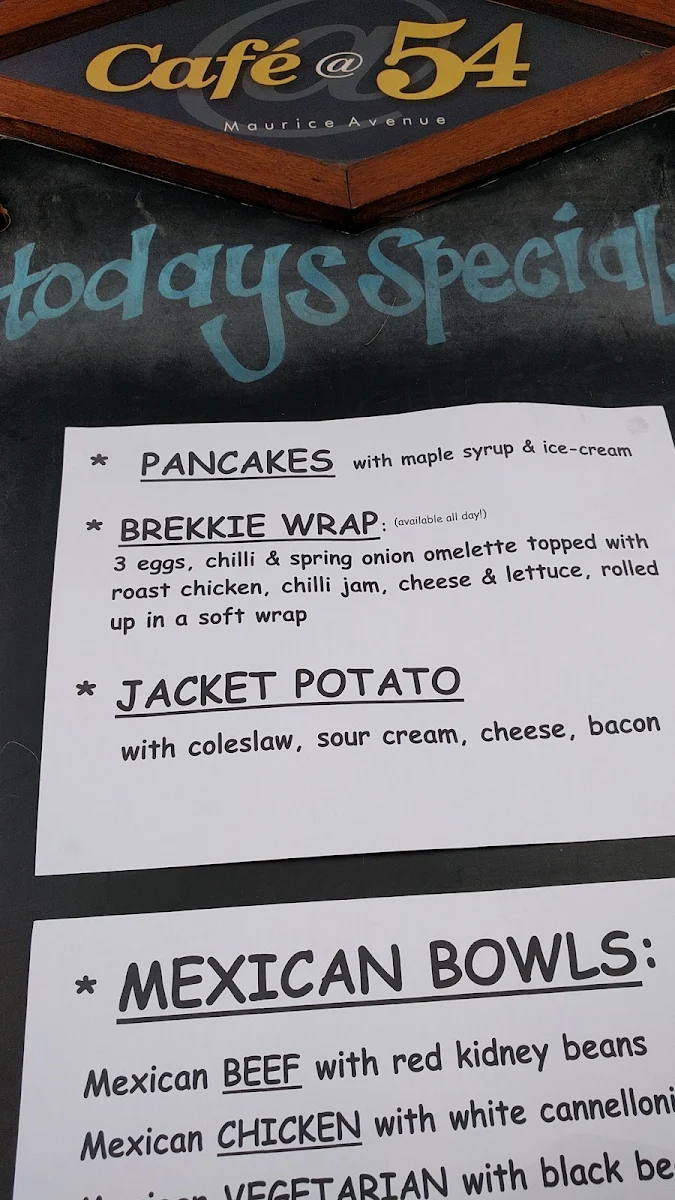 Café @ 54
Maurice Avenue
todays Special
* PANCAKES with maple syrup & ice-cream
* BREKKIE WRAP: (available all day!)
3 eggs, chilli & spring onion omelette topped with
roast chicken, chilli jam, cheese & lettuce, rolled
up in a soft wrap
* JACKET POTATO
with coleslaw, sour cream, cheese, bacon
* MEXICAN BOWLS:
Mexican BEEF with red kidney beans
Mexican CHICKEN with white cannelloni
VEGETARIAN with black